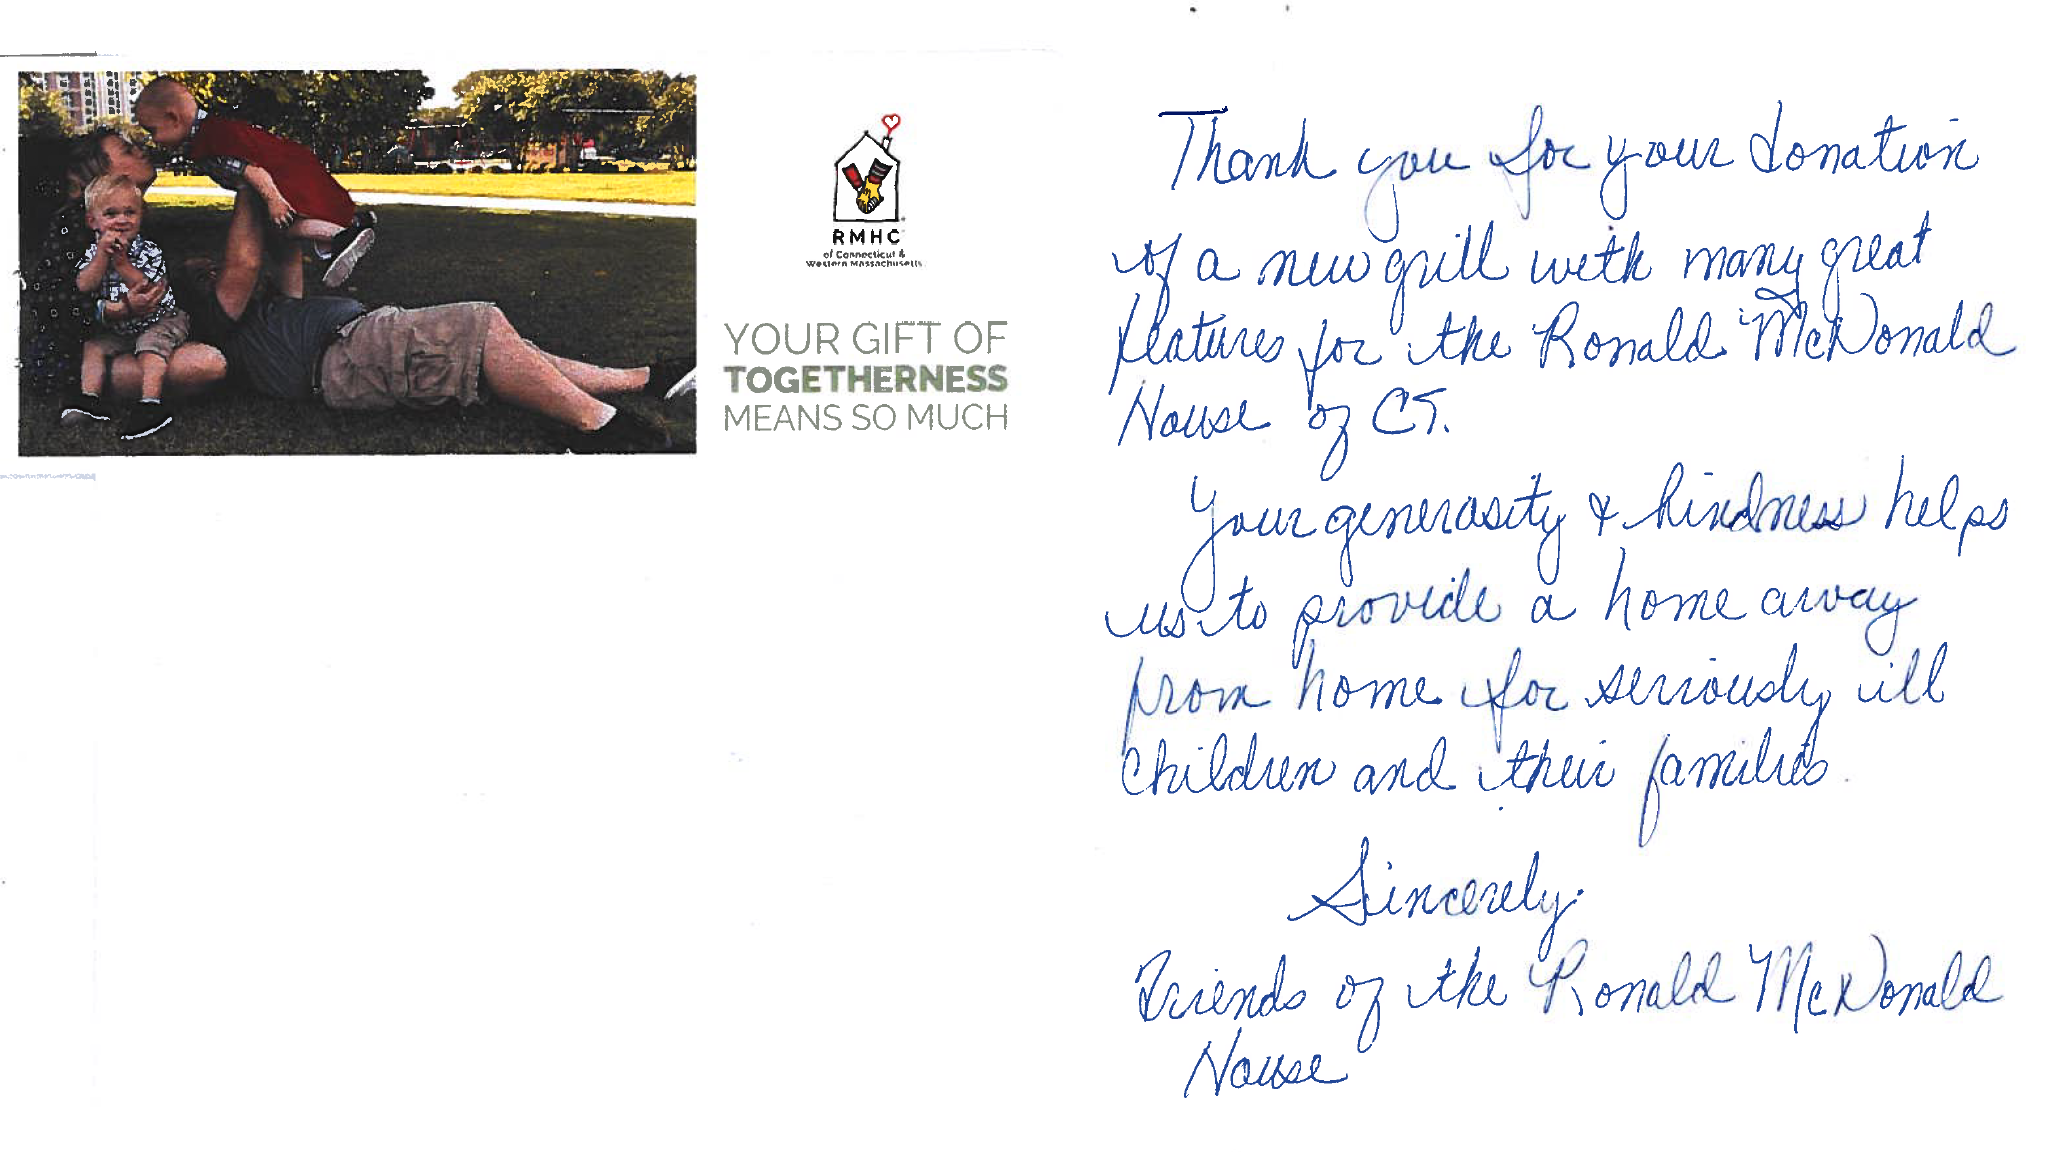 RMHC
of Connecticut &
Western Massachusetts
YOUR GIFT OF
TOGETHERNESS
MEANS SO MUCH
Thank you for your donation
of a new grill with many great
features for the Ronald McDonald
House of CT.
Your generosity & kindness helps
us to provide a home away
from home for seriously ill
children and their families.
Sincerely,
Friends of the Ronald McDonald
House